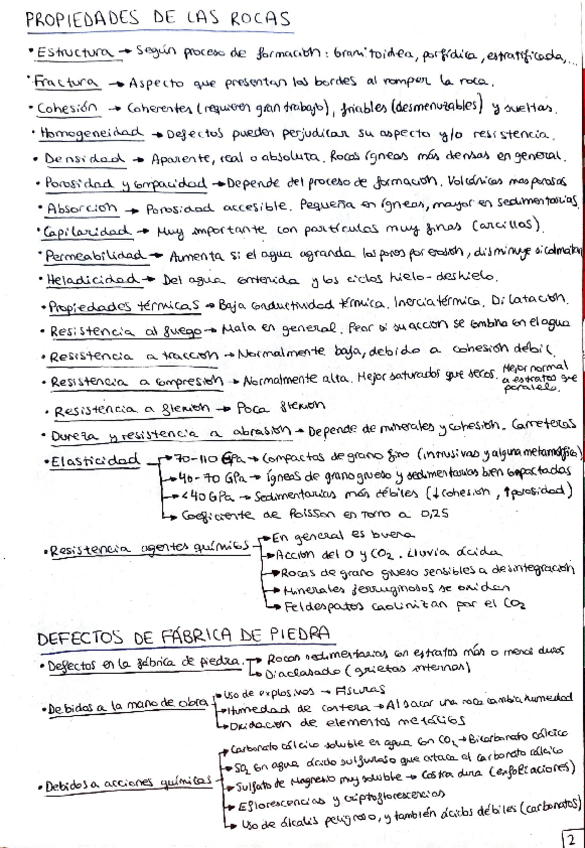 PROPIEDADES DE LAS ROCAS
• Estructura → Según proceso de formación: Granitoidea, porfídica, estratificada,...
• Fractura → Aspecto que presentan los bordes al romper la roca.
• Cohesión → Coherentes (requieren gran trabajo), friables (desmenuzables) y sueltas.
• Homogeneidad → Defectos pueden perjudicar su aspecto y/o resistencia.
• Densidad → Aparente, real o absoluta. Rocas ígneas más densas en general.
• Porosidad y compacidad → Depende del proceso de formación. Volcánicas mas porosas
• Absorción → Porosidad accesible. Pequeña en ígneas, mayor en sedimentarias
• Capilaridad → Muy importante con partículas muy finas (arcillas).
• Permeabilidad → Aumenta si el agua agranda los poros por erosión, disminuye si colmatan
• Heladicidad → Del agua contenida y los ciclos hielo-deshielo.
• Propiedades térmicas → Baja conductividad térmica. Inercia térmica. Dilatación.
• Resistencia al fuego → Mala en general. Peor si su acción se combina con el agua
• Resistencia a tracción → Normalmente baja, debido a cohesión débil.
• Resistencia a compresión → Normalmente alta. Mejor saturados que secos. Mejor normal a estratos que paralelo.
• Resistencia a flexión → Poca flexión
• Dureza y resistencia a abrasión → Depende de minerales y cohesión. Carreteras
• Elasticidad → 70-110 GPa → Compactas de grano fino (intrusivas y alguna metamórfica)
→ 40-70 GPa → Ígneas de grano grueso y sedimentarias bien compactadas
→ <40 GPa → Sedimentarias más débiles (↓cohesión, ↑porosidad)
→ Coeficiente de Poisson en torno a 0,25
• Resistencia agentes químicos → En general es buena
→ Acción del O y CO2. Lluvia ácida
→ Rocas de grano grueso sensibles a desintegración
→ Minerales ferruginosos se oxidan
→ Feldespatos caolinizan por el CO2
DEFECTOS DE FÁBRICA DE PIEDRA
• Defectos en la fábrica de piedra. → Rocas sedimentarias con estratos más o menos duros
→ Diaclasado (grietas internas)
• Debidos a la mano de obra → Uso de explosivos → Fisuras
→ Humedad de cantera → Al sacar una roca cambia humedad
→ Oxidación de elementos metálicos
• Debidos a acciones químicas → Carbonato cálcico soluble en agua con CO2 → Bicarbonato cálcico
→ SO2 en agua ácido sulfuroso que ataca al carbonato cálcico
→ Sulfato de Magnesio muy soluble → Costra dura (exfoliaciones)
→ Eflorescencias y criptoflorescencias
→ Uso de álcalis peligroso, y también ácidos débiles (carbonatos)
2